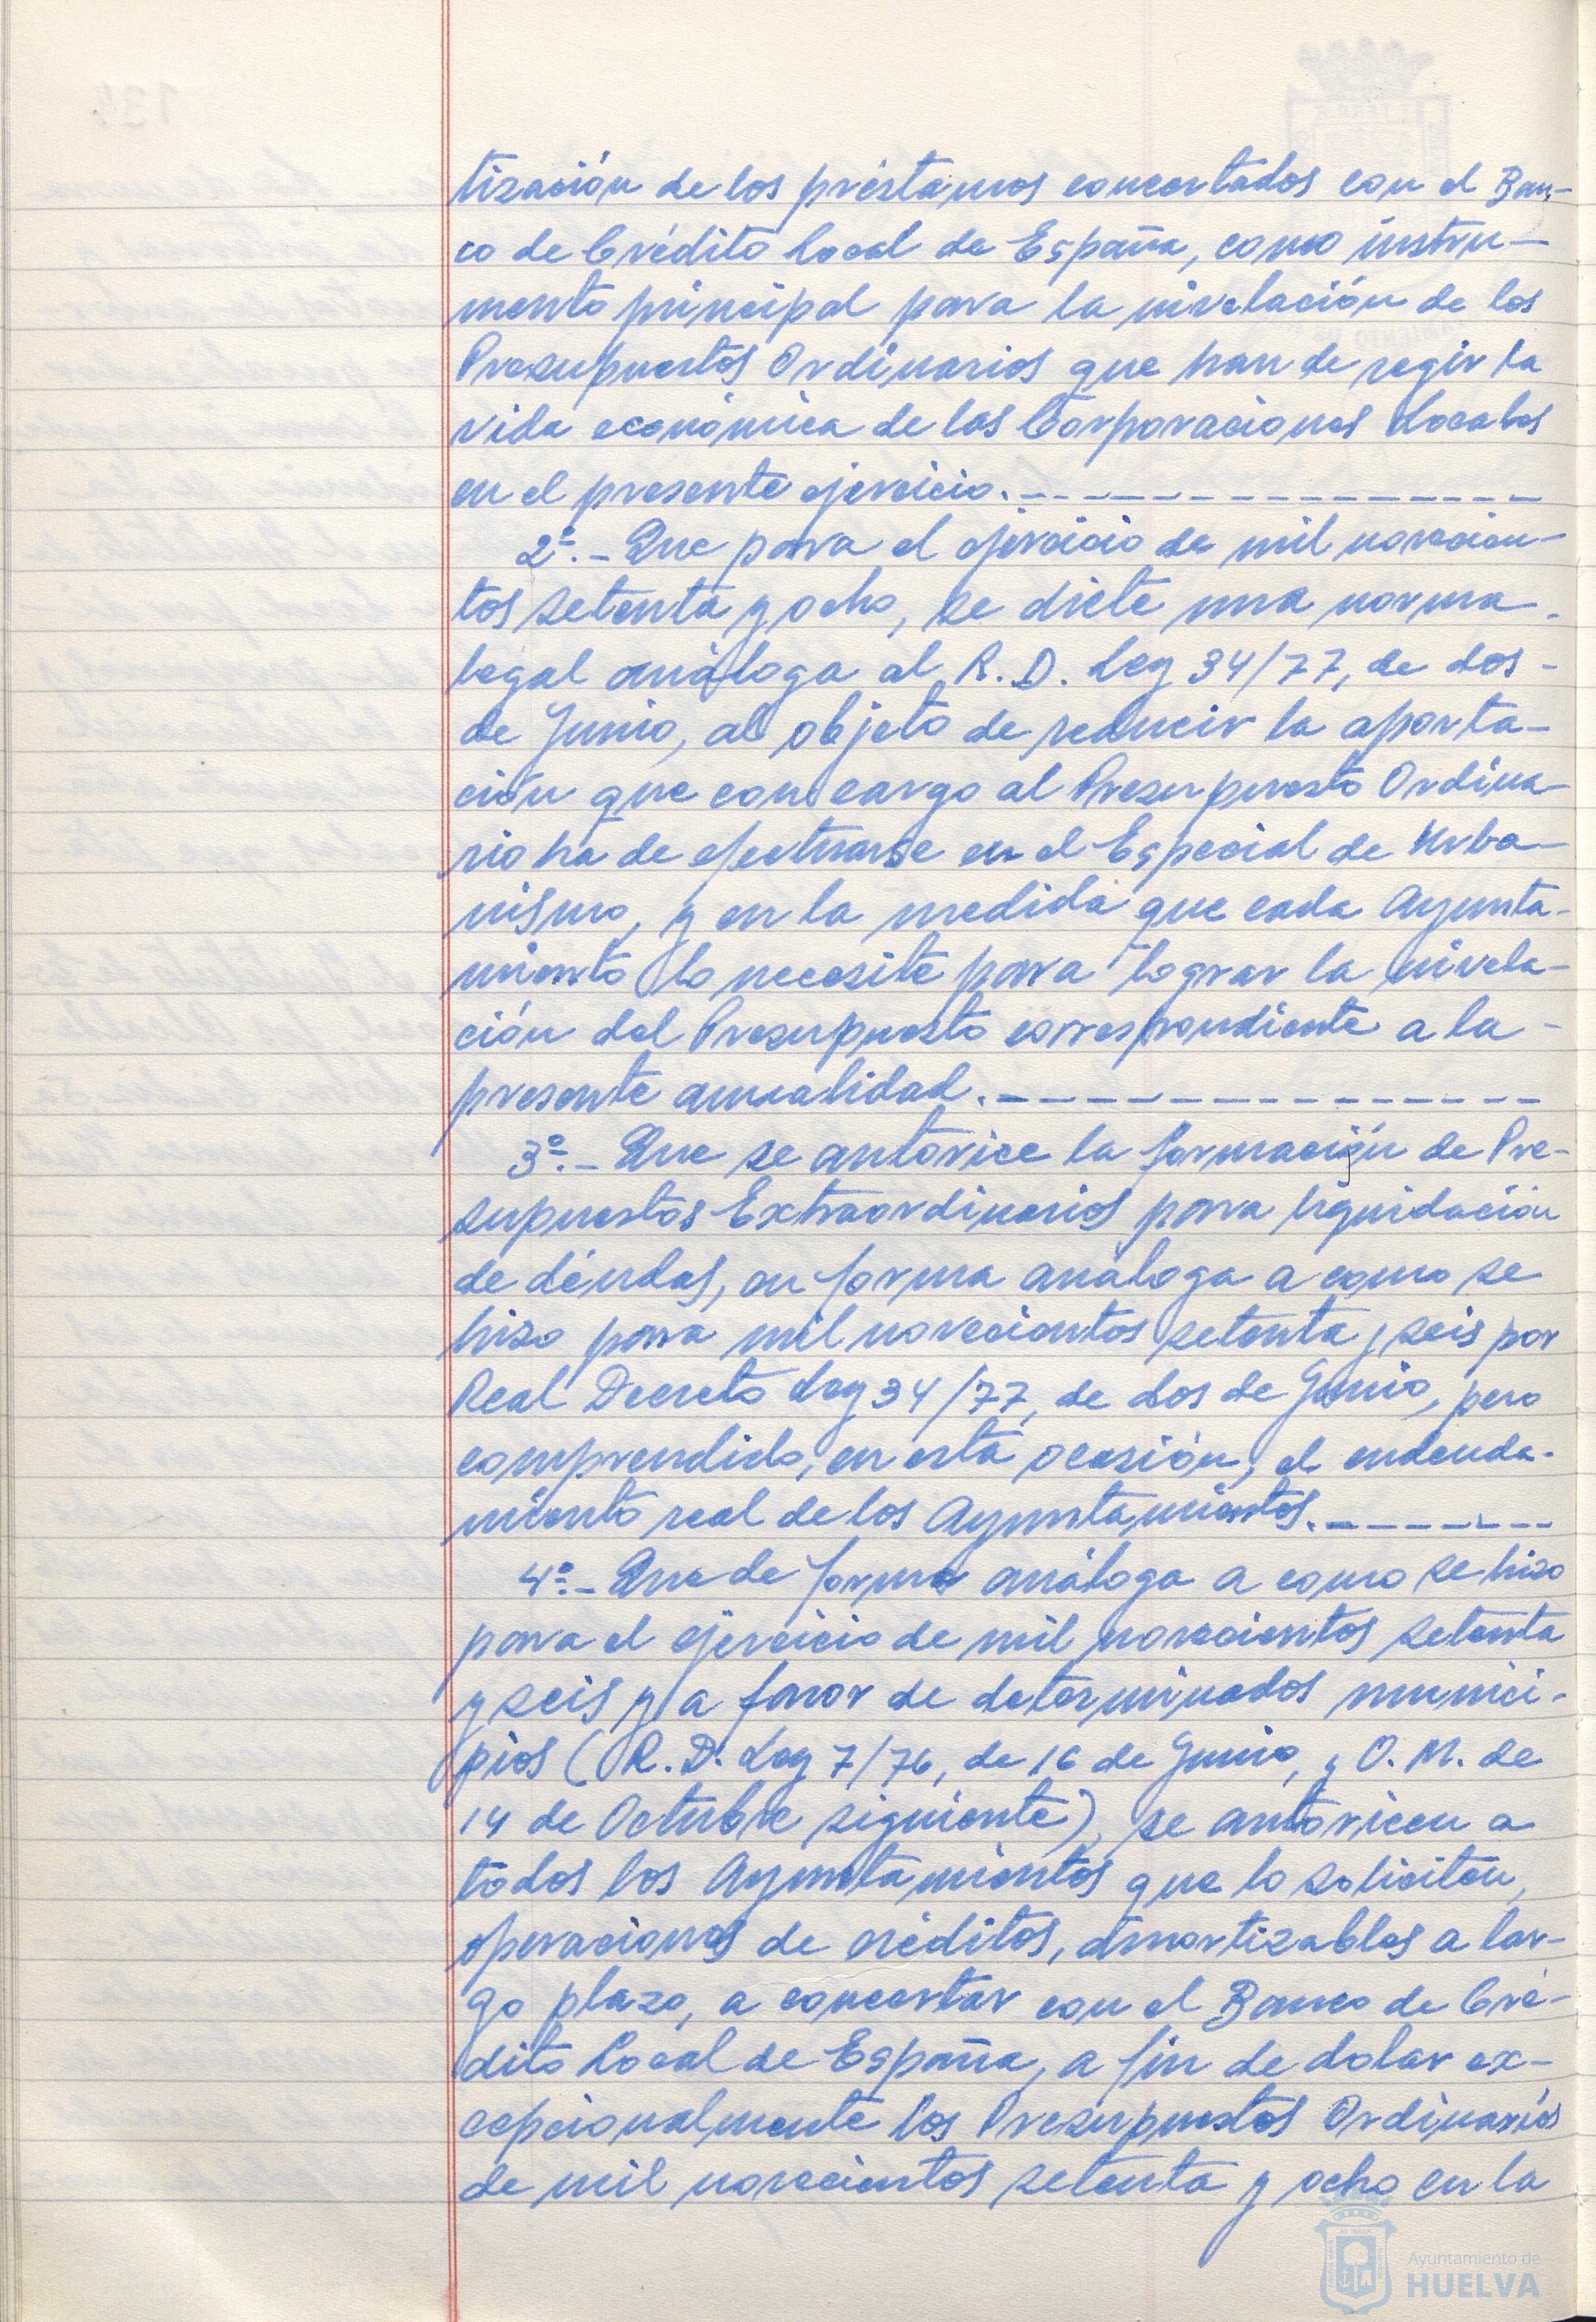 tización de los préstamos concertados con el Ban-
co de Crédito Local de España, como instru-
mento principal para la nivelación de los
Presupuestos Ordinarios que han de regir la
vida económica de las Corporaciones Locales
en el presente ejercicio.
2º.- Que para el ejercicio de mil novecien-
tos setenta y ocho, se dicte una norma
legal análoga al R.D. Ley 34/77, de dos -
de Junio, al objeto de reducir la aporta-
ción que con cargo al Presupuesto Ordina-
rio ha de efectuarse en el Especial de Urba-
nismo, y en la medida que cada Ayunta-
miento lo necesite para lograr la nivela-
ción del Presupuesto correspondiente a la -
presente anualidad.
3º.- Que se autorice la formación de Pre-
supuestos Extraordinarios para liquidación
de déudas, en forma análoga a como se
hizo para mil novecientos setenta y seis por
Real Decreto Ley 34/77, de dos de Junio, pero
comprendido, en esta ocasión, el endeuda-
miento real de los Ayuntamientos.
4º.- Que de forma análoga a como se hizo
para el ejercicio de mil novecientos setenta
y seis y a favor de determinados munici-
pios (R.D. Ley 7/76, de 16 de Junio, y O.M. de
14 de Octubre siguiente), se autoricen a
todos los Ayuntamientos que lo soliciten,
operaciones de créditos, amortizables a lar-
go plazo, a concertar con el Banco de Cré-
dito Local de España, a fin de dolar ex-
cepcionalmente los Presupuestos Ordinarios
de mil novecientos setenta y ocho en la
Ayuntamiento de
HUELVA